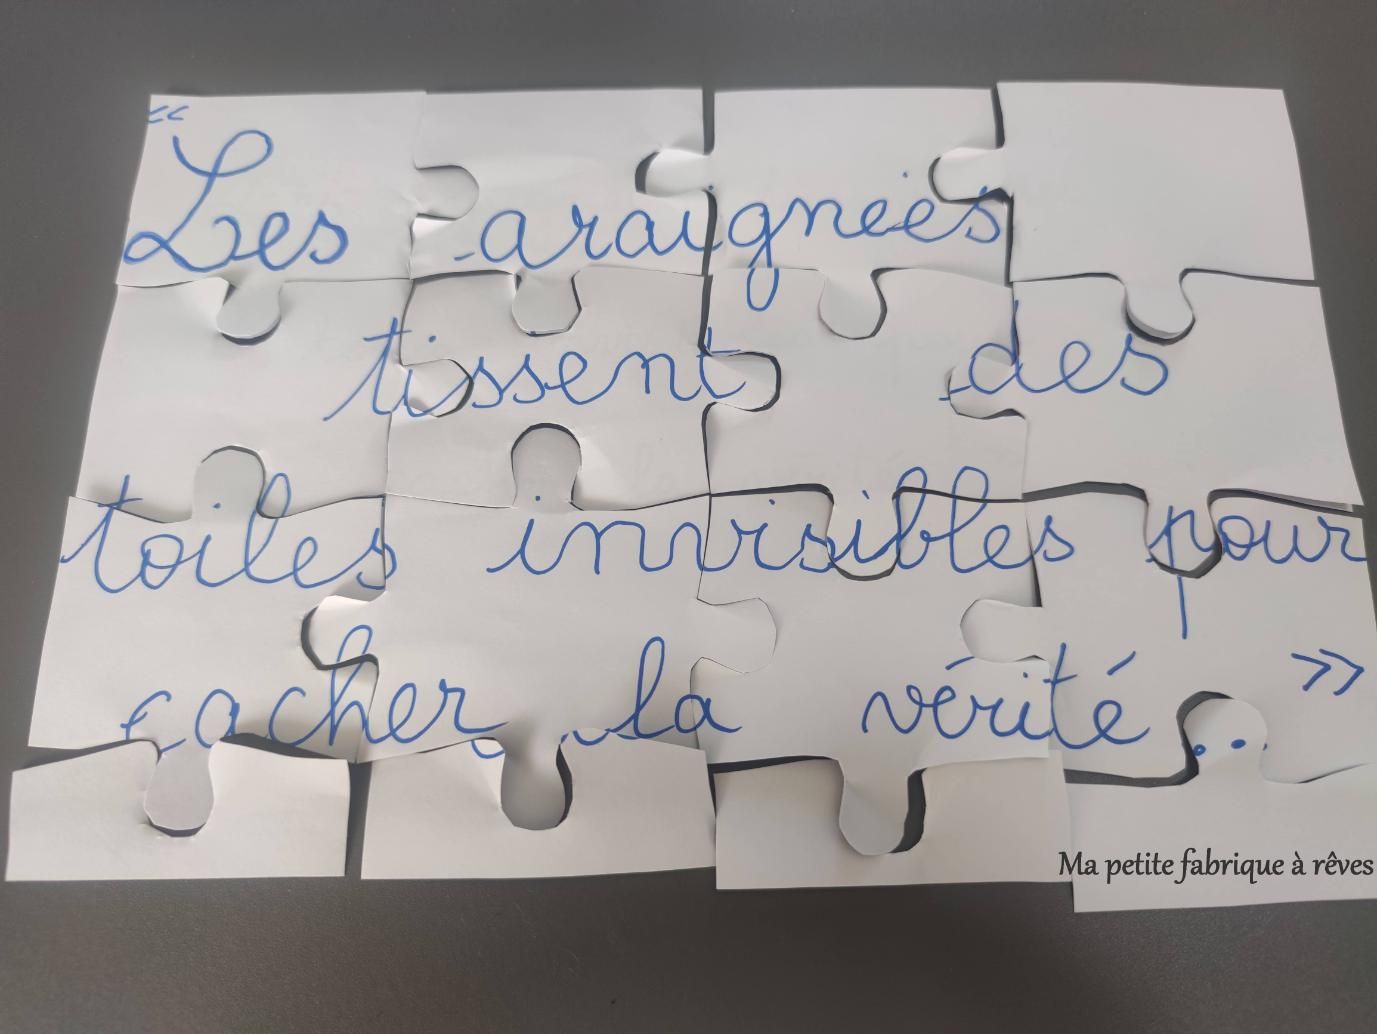 « Les araignées
tissent des
toiles invisibles pour
cacher la vérité... »
Ma petite fabrique à rêves